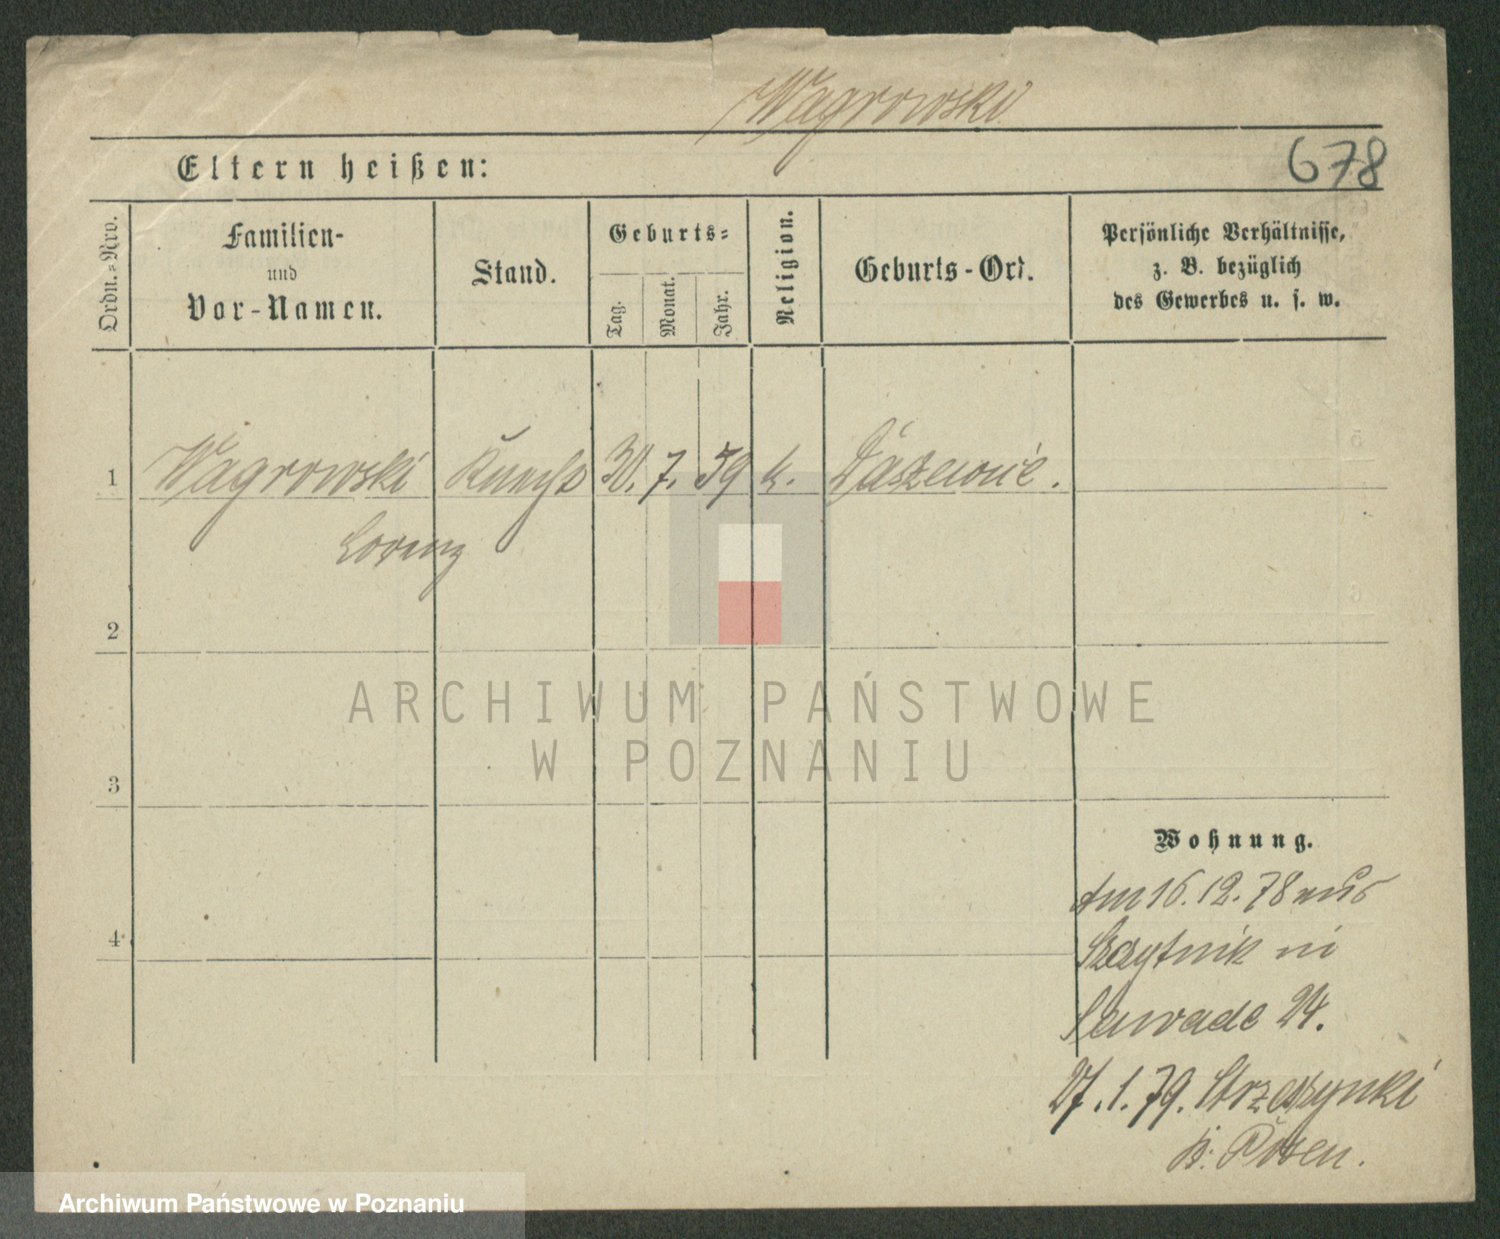 Wagrowski
678
Eltern heißen:
Ordn.=Nro.
Familien-
und
Vor-Namen.
Stand.
Geburts=
Tag.
Monat.
Jahr.
Religion.
Geburts-Ort.
Persönliche Verhältnisse,
z. B. bezüglich
des Gewerbes u. s. w.
1 Wagrowski Knecht 30. 7. 59 k.
Lorenz
2
ARCHIWUM PAŃSTWOWE
W POZNANIU
3
Wohnung.
Am 16. 12. 78 aus
4 Szczytnik in
Zawade 24.
27. 1. 79. Strzeszynki
b. Posen.
Archiwum Państwowe w Poznaniu